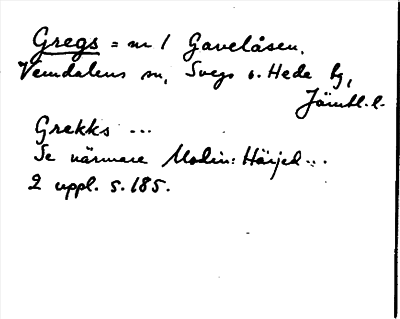 Gregs = m / Gavelåsen.
Vemdalens sn, Svegs o. Hede tg,
Jämtl. l.
Grekks ...
Se närmare Modin: Härjed...
2 uppl. s. 185.